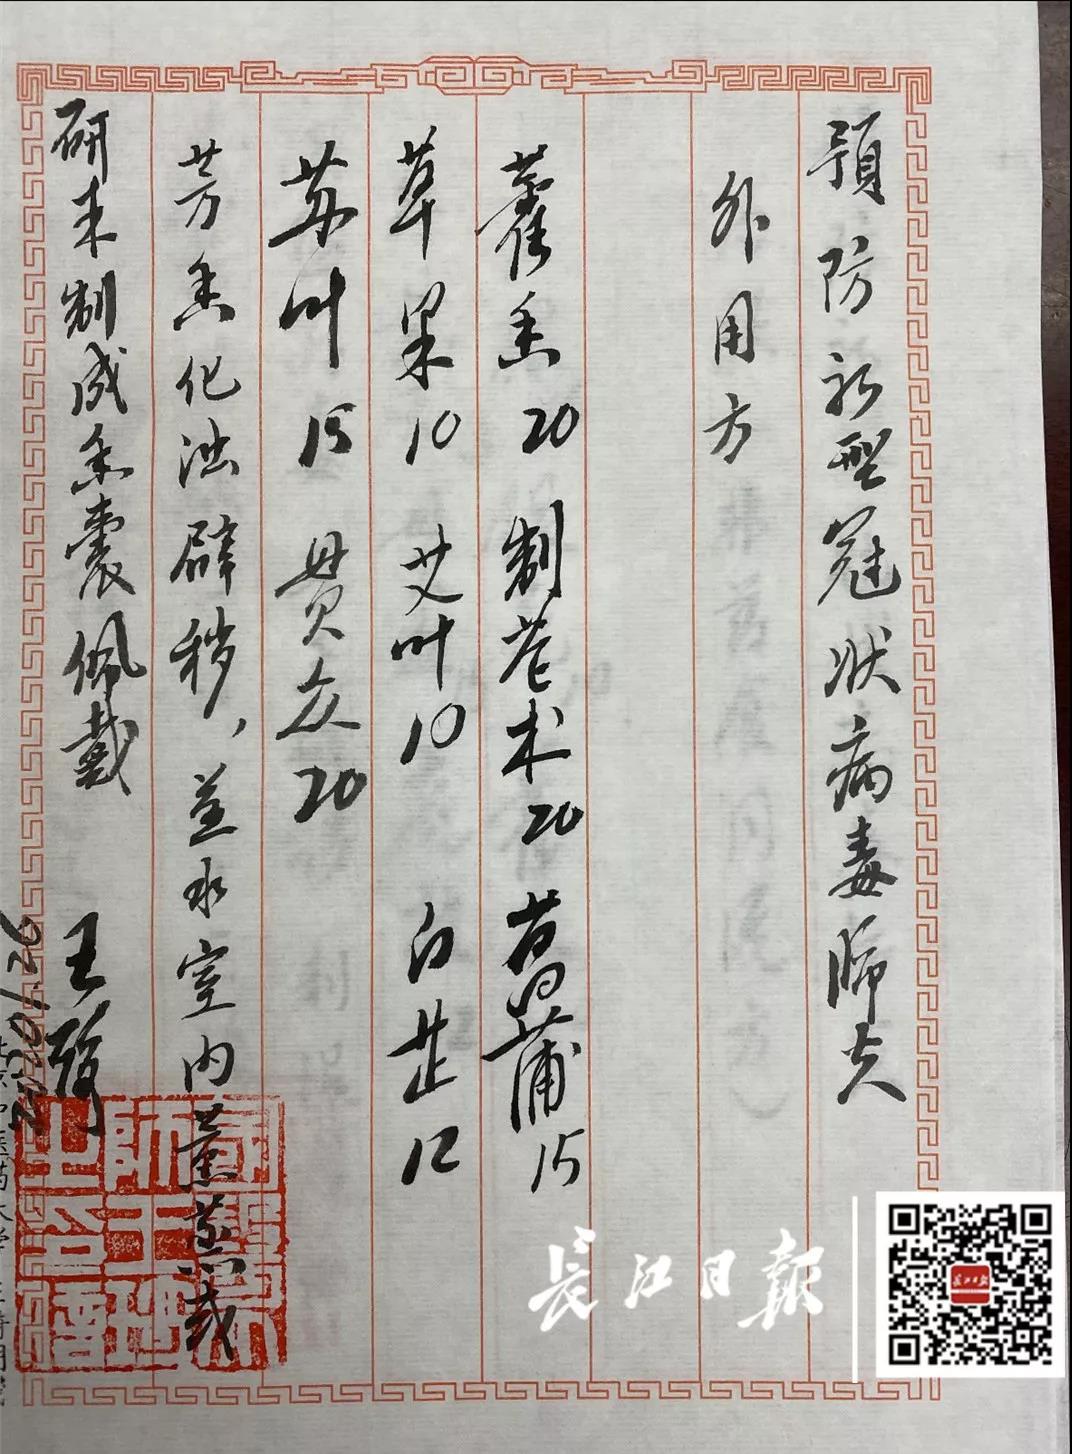 预防新型冠状病毒肺炎
外用方
藿香20 制苍术20 菖蒲15
草果10 艾叶10 白芷12
苏叶15 贯众20
芳香化浊辟秽、煮水室内薰蒸或
研末制成香囊佩戴 王琦
2020.1.26
長江日報
长江日报